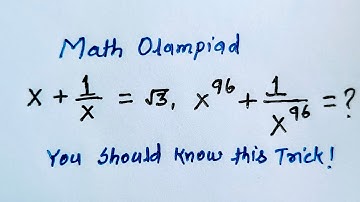 Math Olampiad
x + 1/x = √3, x^96 + 1/x^96 = ?
You Should Know this Trick!